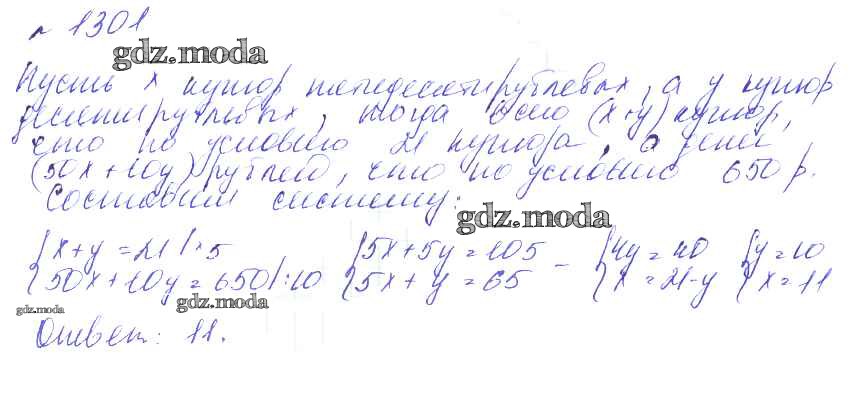 № 1301
gdz.moda
Пусть x купюр пятидесятирублевых, а y купюр
десятирублевых, тогда всего (x+y) купюр,
что по условию 21 купюра, а денег
(50x+10y) рублей, что по условию 650 р.
Составим систему:
gdz.moda
{x+y=21 |·5 {5x+5y=105 – {4y=40 {y=10
{50x+10y=650 |:10 {5x+y=65 {x=21-y {x=11
gdz.moda
gdz.moda
Ответ: 11.